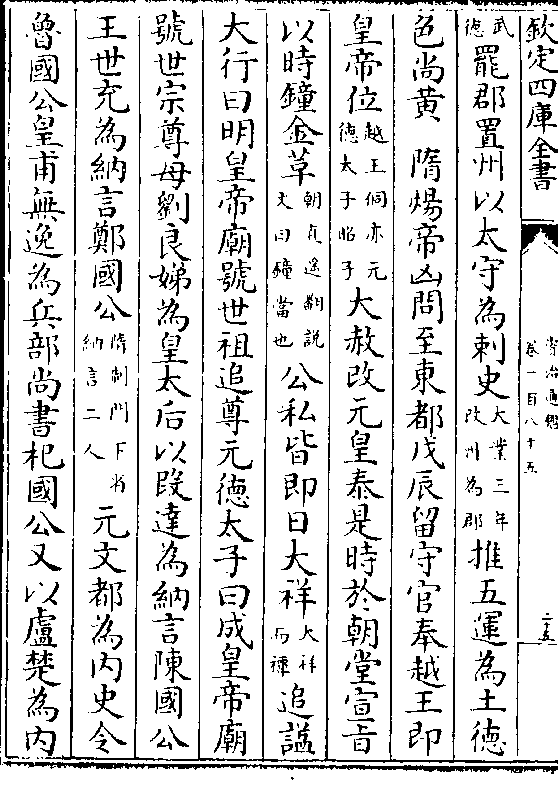 欽定四庫全書
資治通鑑
卷一百八十五
二五
武
德罷郡置州以太守為剌史大業三年
改州為郡推五運為土德
色尚黃 隋煬帝凶問至東都戊辰留守官奉越王即
皇帝位越王侗亦元
德太子昭子大赦改元皇泰是時於朝堂宣旨
以時鐘金革朝直遙翻説
文曰鐘當也公私皆即日大祥大祥
而禫追諡
大行曰明皇帝廟號世祖追尊元德太子曰成皇帝廟
號世宗尊母劉良娣為皇太后以段達為納言陳國公
王世充為納言鄭國公隋制門下省
納言二人元文都為内史令
魯國公皇甫無逸為兵部尚書杞國公又以盧楚為内